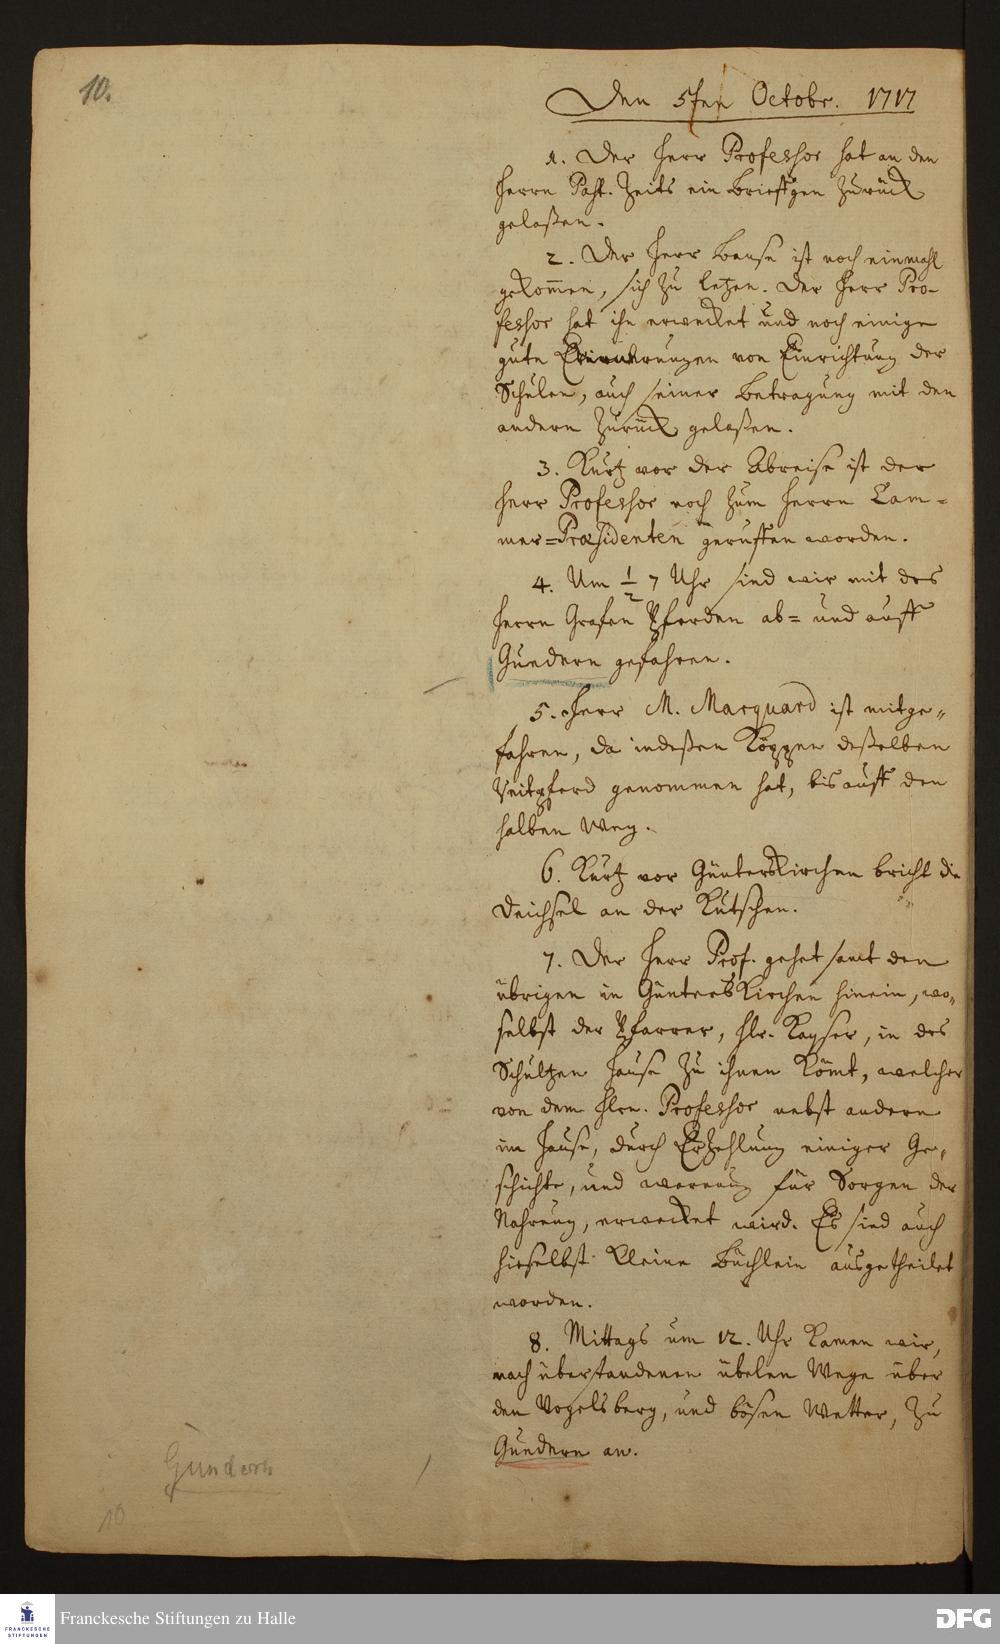 10.
Den 5ten Octobr. 1717
1. Der Herr Professor hat an den
Herrn Past. Zeits ein Brieffgen zurück
gelaßen.
2. Der Herr Bense ist noch einmahl
gekom̅en, sich zu letzen. Der Herr Pro-
fessor hat ihn erwecket und noch einige
gute Erinnerungen von Einrichtung der
Schulen, auch seiner Betragung mit den
andern zurück gelaßen.
3. Kurtz vor der Abreise ist der
Herr Professor noch zum Herrn Cam=
mer=Præsidenten geruffen worden.
4. Um ½ 7 Uhr sind wir mit des
Herrn Grafen Pferden ab= und auff
Guedern gefahren.
5. Herr M. Marquard ist mitge=
fahren, da indeßen Köppen deßelben
Reitpferd genommen hat, bis auff den
halben Weg.
6. Kurtz vor Günterskirchen bricht die
Deichsel an der Kutschen.
7. Der Herr Prof. gehet samt den
übrigen in Günterskirchen hinein, wo=
selbst der Pfarrer, Hr. Kayser, in des
Schultzen Hause zu ihnen köm̅t, welcher
von dem Hrn. Professor nebst andern
im Hause, durch Erzehlung einiger Ge=
schichte, und warnung für Sorgen der
Nahrung, erwecket wird. Es sind auch
hieselbst kleine Büchlein ausgetheilet
worden.
8. Mittags um 12. Uhr kamen wir,
nach überstandenen übelen Wege über
den Vogelsberg, und bösen Wetter, zu
Guedern an.
Gundern
10
FRANCKESCHE
STIFTUNGEN
Franckesche Stiftungen zu Halle
DFG